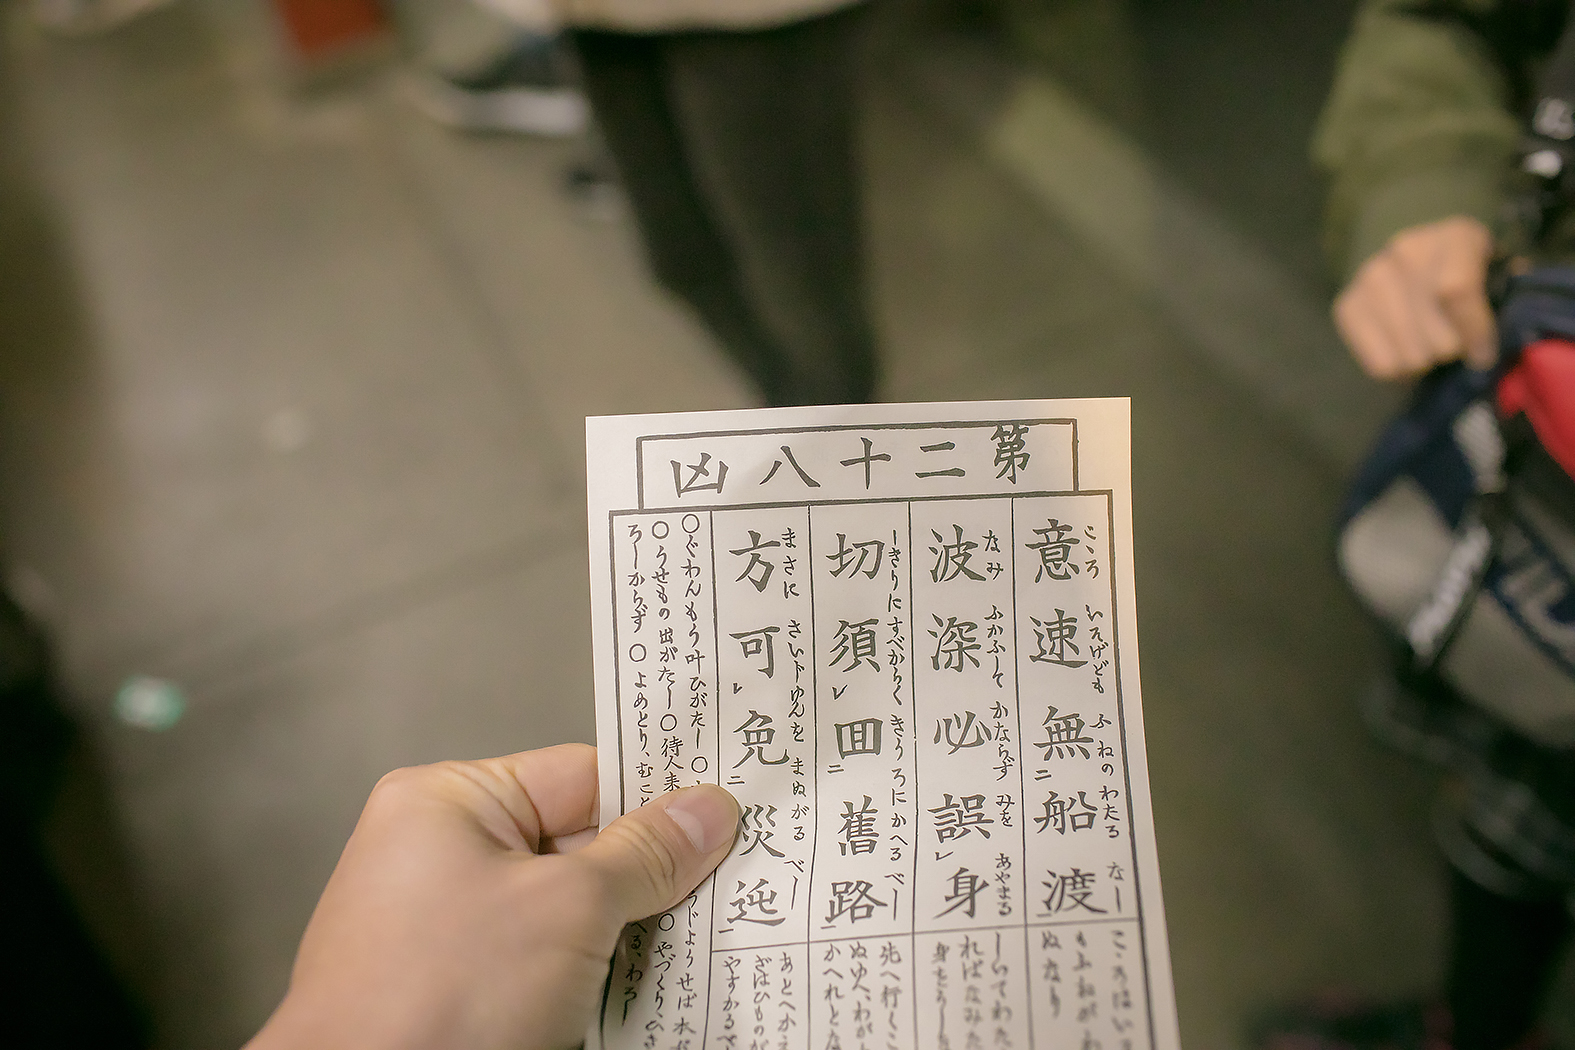 第二十八凶
意速無船渡
こころ いそげども ふねの わたる なし
波深必誤身
なみ ふかふして かならず みを あやまる
切須回舊路
一きりにすべからく きうろにかへるべし
方可免災迍
まさに さいドゆんを まぬがるべし
こころはい
ぬなり
しいてわた
ればなみた
身をうし
先へ行くこ
ぬゆへ、わが
かへれとな
あとへかえ
ざはひものが
やすかるべ
〇ぐわんもう叶ひがたし〇
うじよりせば
〇うせもの出がたし〇待人来
〇やづくり
ろしからず〇よめとり、むこと
べる、わろし